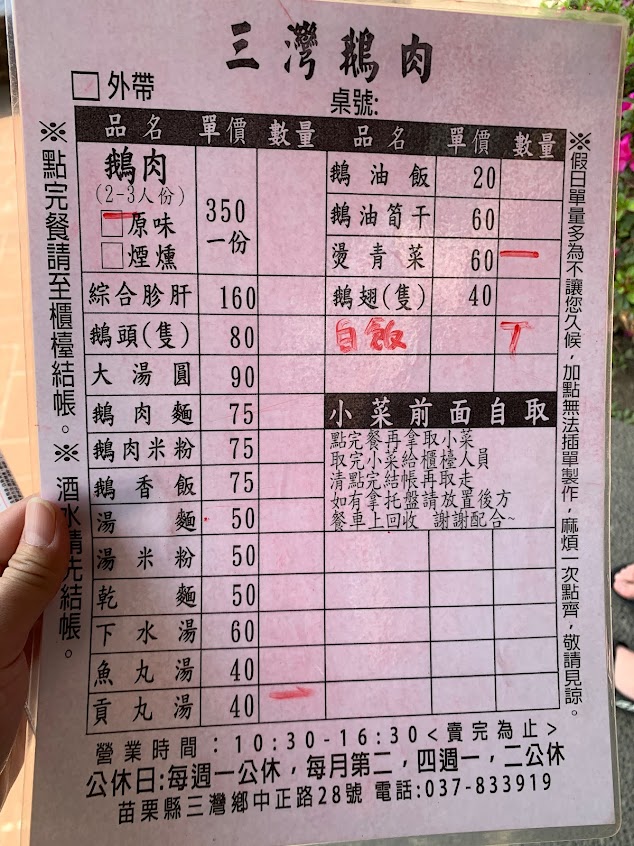 三灣鵝肉
□外帶 桌號:
品名 單價 數量 品名 單價 數量
鵝肉
(2-3人份)
□原味
□煙燻
350
一份
綜合胗肝 160
鵝頭(隻) 80
大湯圓 90
鵝肉麵 75
鵝肉米粉 75
鵝香飯 75
湯麵 50
湯米粉 50
乾麵 50
下水湯 60
魚丸湯 40
貢丸湯 40 一
鵝油飯 20
鵝油筍干 60
燙青菜 60 一
鵝翅(隻) 40
白飯 丅
小菜前面自取
點完餐再拿取小菜
取完小菜給櫃檯人員
清點完結帳再取走
如有拿托盤請放置後方
餐車上回收 謝謝配合~
※點完餐請至櫃檯結帳。※酒水請先結帳。
※假日單量多為不讓您久候,加點無法插單製作,麻煩一次點齊,敬請見諒。
營業時間:10:30-16:30<賣完為止>
公休日:每週一公休,每月第二,四週一,二公休
苗栗縣三灣鄉中正路28號 電話:037-833919